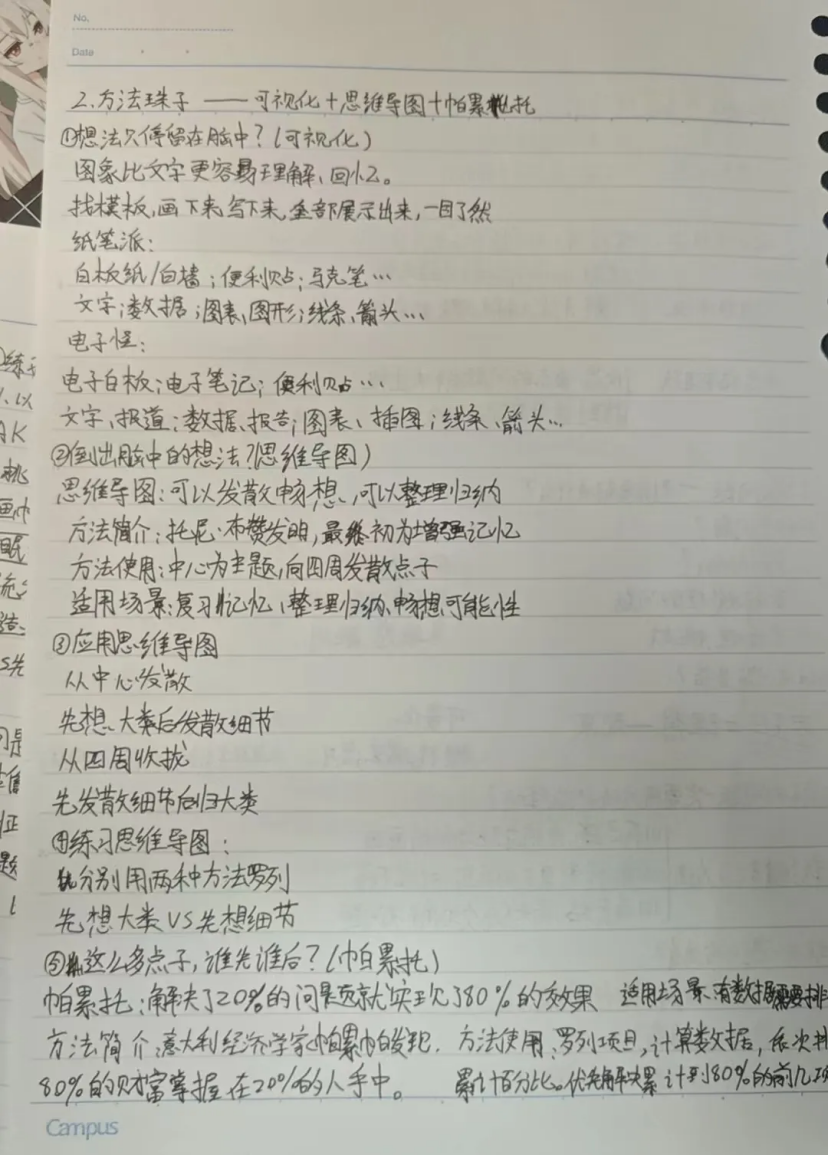 No.
Date
2.方法珠子 —— 可视化+思维导图+帕累托
①想法只停留在脑中?(可视化)
图象比文字更容易理解、回忆。
找模板,画下来,写下来,全部展示出来,一目了然
纸笔派:
白板纸/白墙;便利贴;马克笔…
文字;数据;图表、图形;线条、箭头…
电子怪:
电子白板;电子笔记;便利贴…
文字、报道;数据、报告;图表、插图;线条、箭头…
②倒出脑中的想法?(思维导图)
思维导图:可以发散畅想、可以整理归纳
方法简介:托尼·布赞发明,最初为增强记忆
方法使用:中心为主题,向四周发散点子
适用场景:复习记忆、整理归纳、畅想可能性
③应用思维导图
从中心发散
先想大类后发散细节
从四周收拢
先发散细节后归大类
④练习思维导图:
分别用两种方法罗列
先想大类VS先想细节
⑤这么多点子,谁先谁后?(帕累托)
帕累托:解决了20%的问题就实现了80%的效果 适用场景:有数据需要排
方法简介:意大利经济学家帕累帕发现. 方法使用:罗列项目,计算数据,依次排
80%的财富掌握在20%的人手中。 累计百分比。优先解决累计到80%的前几项
Campus